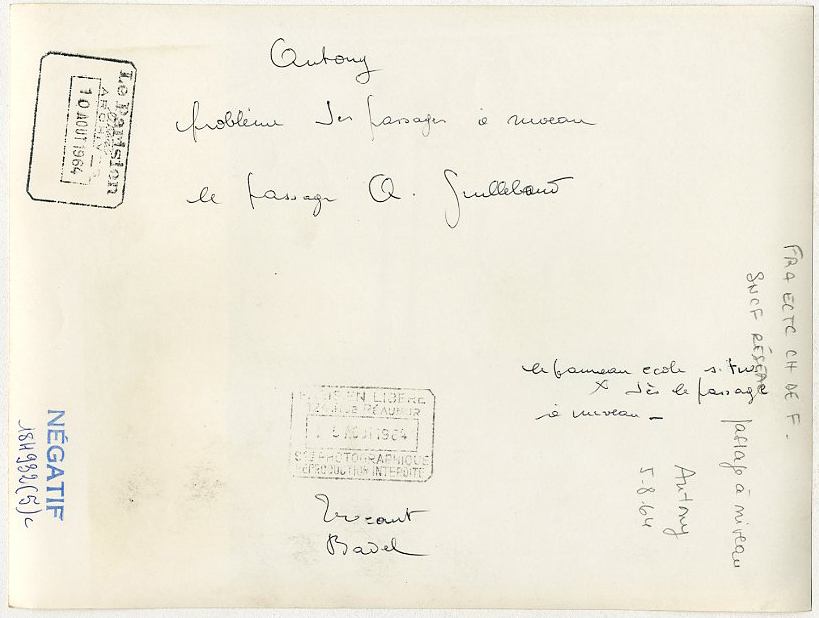 Antony
problème des passages à niveau
le passage A. Guillebaud
Le Parisien
ARCHIVES
10 AOUT 1964
FRA ECTC CH DE F.
SNCF RÉSEAU
passage à niveau
Antony
5.8.64
le panneau ecole situé
X dès le passage
à niveau _
PARISIEN LIBÉRÉ
RÉAUMUR
5 AOUT 1964
SCE PHOTOGRAPHIQUE
REPRODUCTION INTERDITE
Badel
NÉGATIF